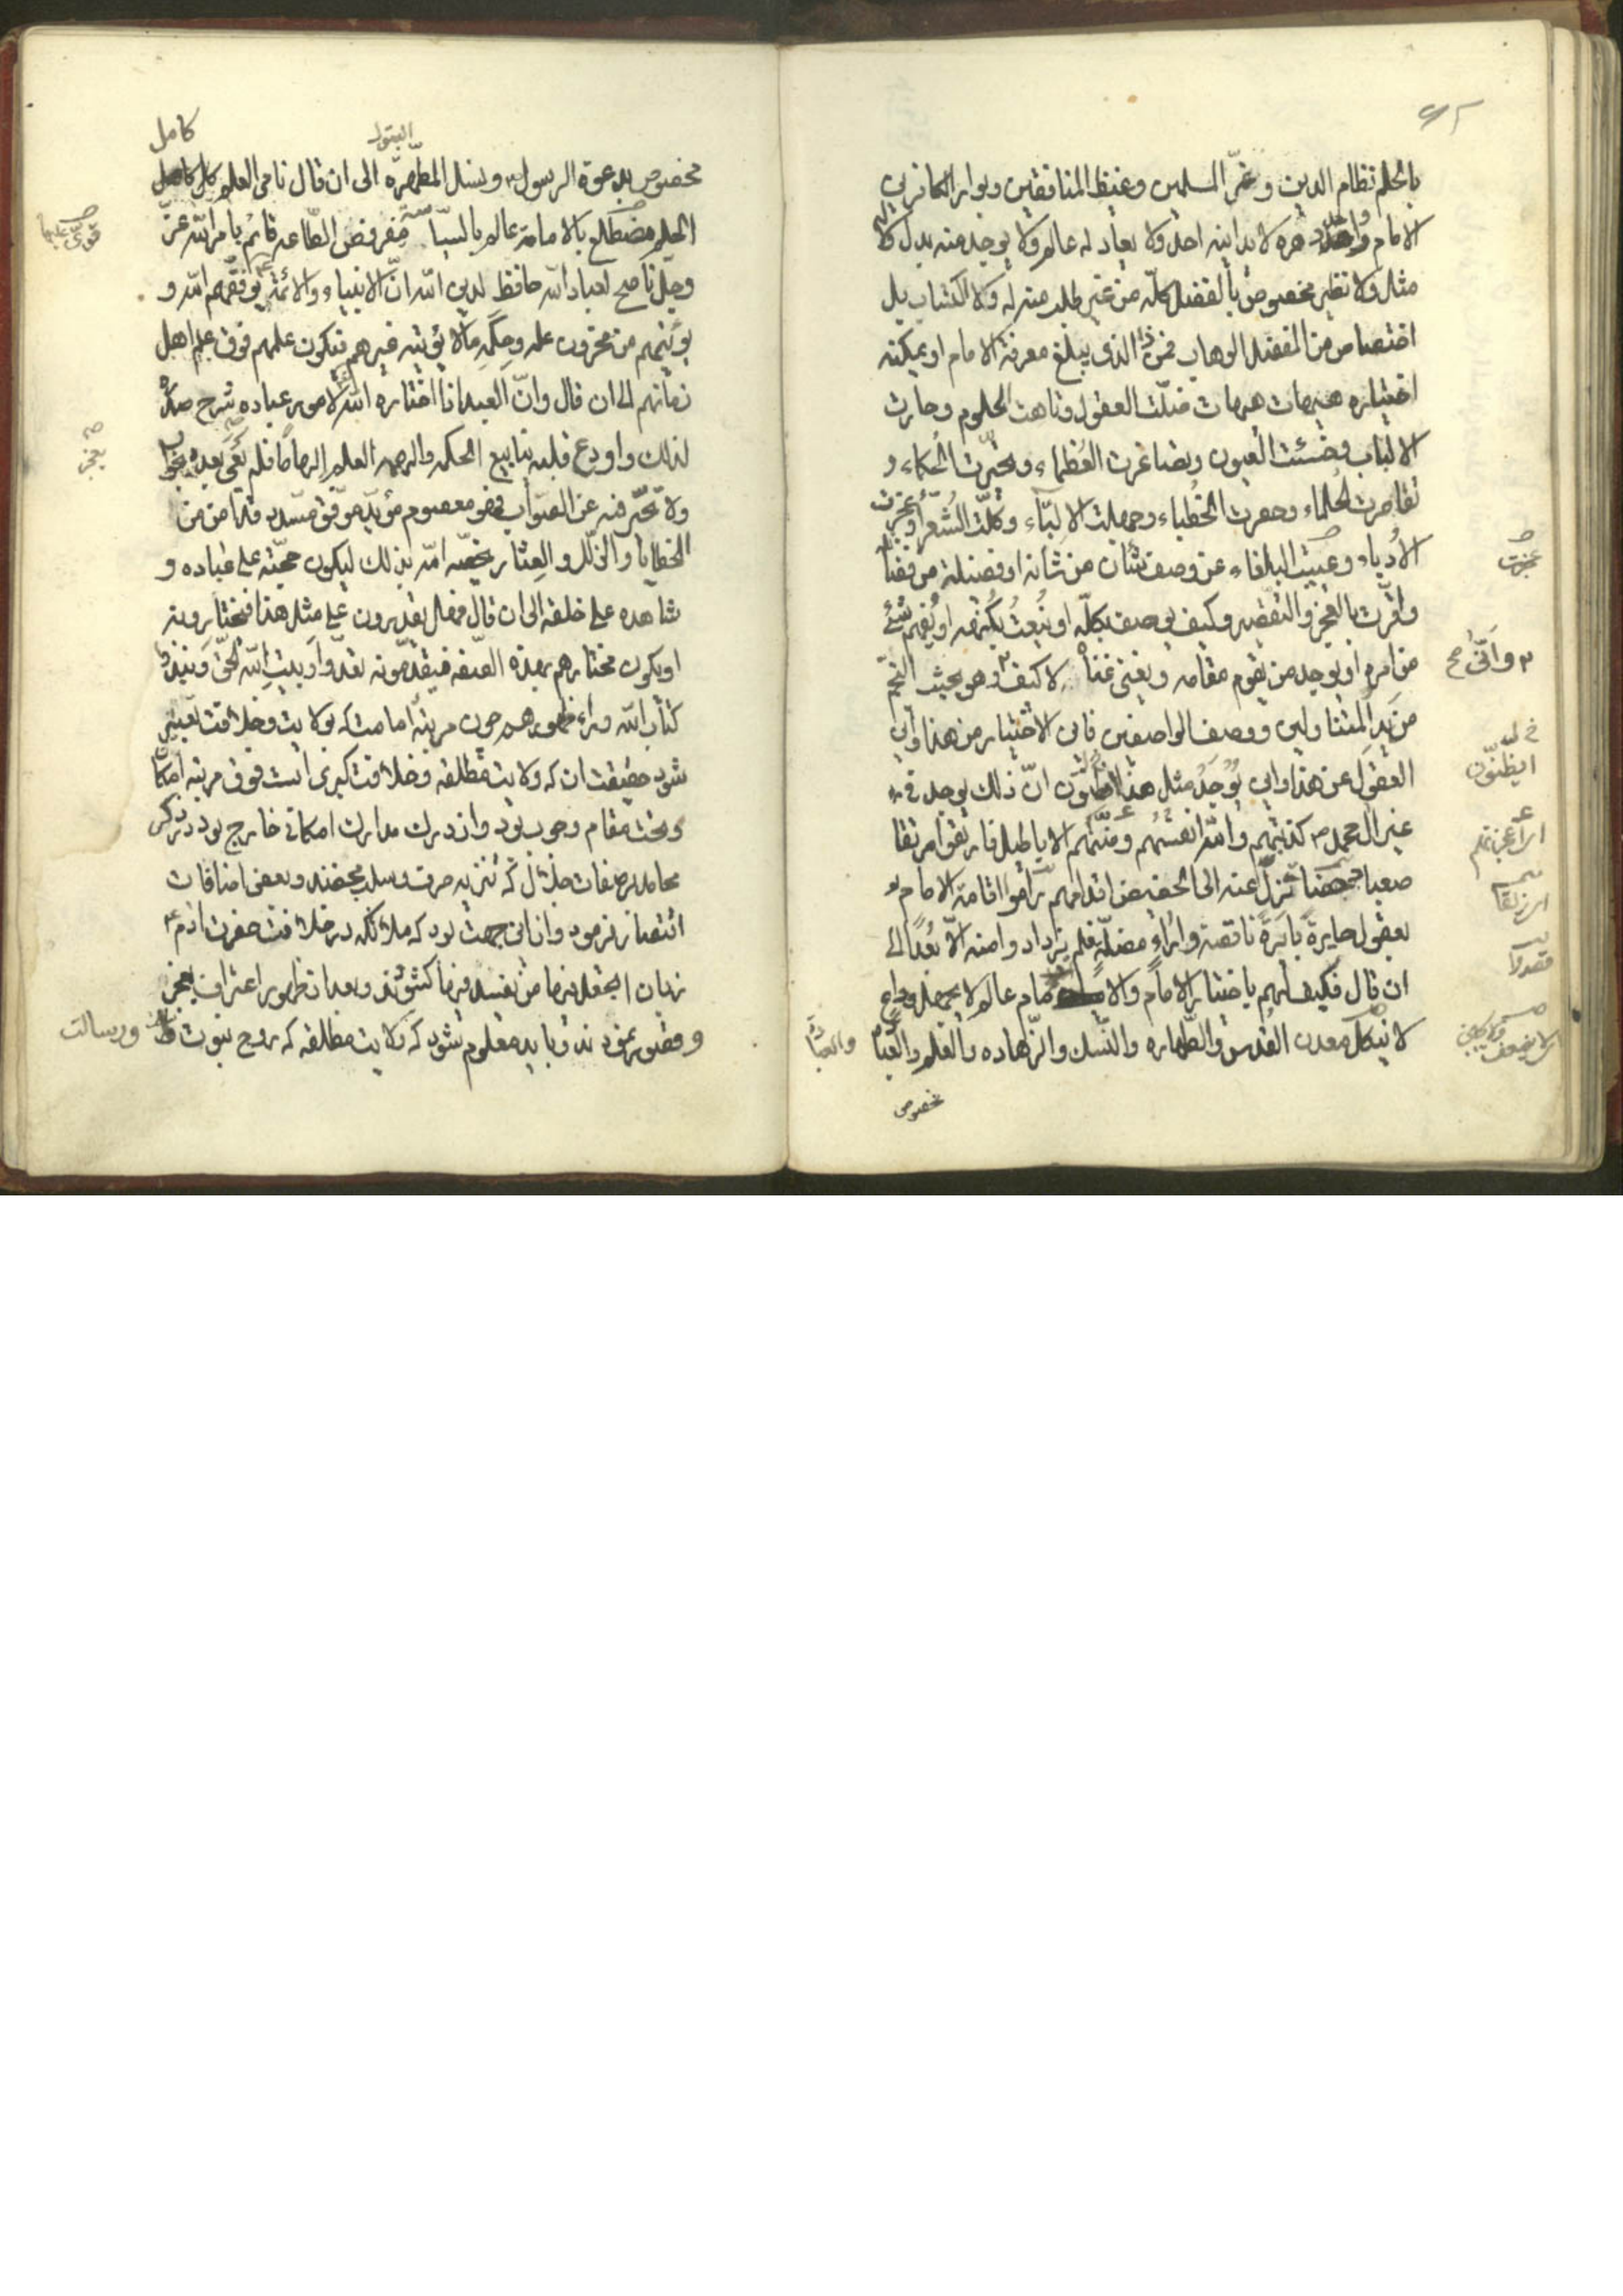 بالحلم نظام الدین و عزّ المسلمین وغیظ المنافقین وبوار الکافرین
الامام واحد دهره لا یدانیه احد ولا یعادله عالم ولا یوجد منه بدل ولا له
مثل ولا نظیر مخصوص بالفضل کلّه من غیر طلب منه له ولا اکتساب بل
اختصاص من المفضل الوهاب فمن ذا الذی یبلغ معرفة الامام او یمکنه
اختیاره هیهات هیهات ضلّت العقول وتاهت الحلوم وحارت
الالباب وخسئت العیون وتصاغرت العُظماء وتحیّرت الحُکماء و
تقاصرت الحُلماء وحصرت الخُطباء وجهلت الالبّاء وکلّت الشُعراء وعجزت
الاُدباء وعییت البلغاء عن وصف شأن من شأنه او فضیلة من فضائله
واقرّت بالعجز والتقصیر وکیف یوصف بکلّه او یُنعت بکُنهه او یُفهم شئ
من امره او یوجد من یقوم مقامه ویغنی غناه لا کیف وهو بحیث النجم
من ید المتناولین ووصف الواصفین فاین الاختیار من هذا واین
العقول عن هذا واین یُوجد مثل هذا اتظنّون انّ ذلک یوجد فی
غیر آل محمد ص کذبتهم والله انفسهم ومنّتهم الاباطیل فارتقوا مرتقا
صعبا دحضا تزلّ عنه الی الحضیض اقدامهم رامُوا اقامة الامام
بعقول حایرة بایرة ناقصة واراء مضلّة فلم یزداد وا منه الاّ بُعدا الی
ان قال فکیف لهم باختیار الامام والامام عالم لا یجهل وداع
لا ینکل معدن القُدس والطّهاره والنّسک والزّهاده والعلم والعباده
مخصوص
وانّی صح
ایظنّون
کامل
البتول
مخصوص بدعوة الرسول ونسل المطهّرة الی ان قال نامی العلم کامل
الحلم مضطلع بالامامة عالم بالسیاسة مفروض الطّاعه قائم بامر الله عزّ
وجلّ ناصح لعباد الله حافظ لدین الله انّ الانبیاء والائمة یوفّقهم الله و
یؤتیهم من مخزون علمه وحِکَمِه مالا یؤتیه غیرهم فیکون علمهم فوق علم اهل
زمانهم الی ان قال وانّ العبد اذا اختاره الله لامور عباده شرح صدره
لذلک واودع قلبه ینابیع الحکمه والهمه العلم الهاماً فلم یعیَ بعده بجواب
ولا تحیّر فیه عن الصّواب فهو معصوم مؤیّد موفّق مسدد قد امن من
الخطایا والزّلل والعثار یخصّه الله بذلک لیکون حجّته علی عباده و
شاهده علی خلقه الی ان قال فهل یقدرون علی مثل هذا فیختارونه
او یکون مختارهم بهذه الصّفه فیقدّمونه تعدّوا وبیتِ الله الحقّ ونبذوا
کتاب الله وراء ظهورهم چون مرتبهٔ امامت که بولایت وخلافت تعبیر
شود حقیقت ان که ولایت مطلقه وخلافت کبری است فوق مرتبه امکان
وتحت مقام وجوب بود واز درک مدارک امکانی خارج بود در ذکر
محامد وصفات جلال که تنزیه صرف وسلب محضند وبعض اضافات
اقتصار نفرمود واز این جهت بود که ملائکه در خلافت حضرت آدم ع
زبان اتجعل فیها من یفسد فیها کشودند وبعد از ظهور اعتراف بعجز
وقصور نمودند وباید معلوم شود که ولایت مطلقه که روح نبوت
ورسالت